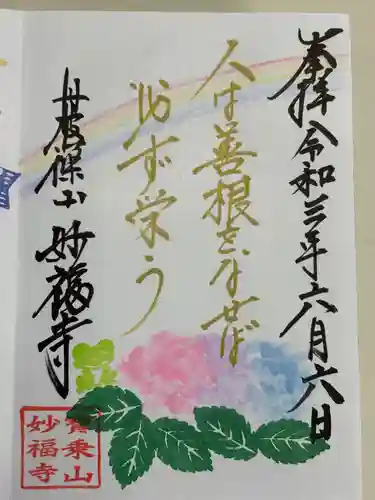 奉拝 令和三年六月六日
人は善根をなせば
必ず栄う
丹波保山 妙福寺
寳乗山
妙福寺